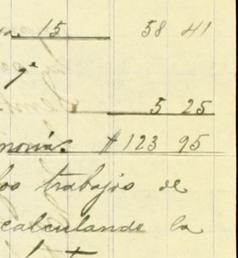 15 58 41
5 25
$123 95
los trabajos de
calculando la